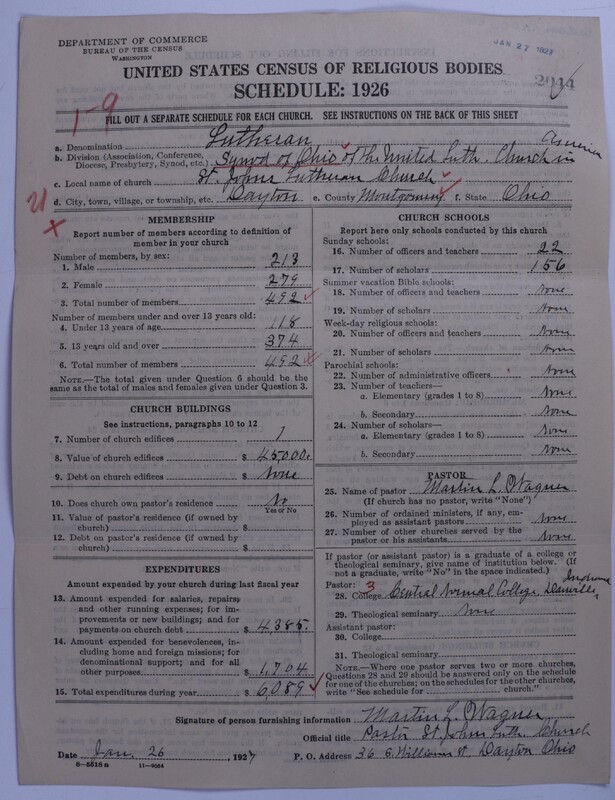 DEPARTMENT OF COMMERCE
BUREAU OF THE CENSUS
WASHINGTON
JAN 27 1927
UNITED STATES CENSUS OF RELIGIOUS BODIES
SCHEDULE: 1926
1-9
FILL OUT A SEPARATE SCHEDULE FOR EACH CHURCH. SEE INSTRUCTIONS ON THE BACK OF THIS SHEET
a. Denomination Lutheran
b. Division (Association, Conference, Diocese, Presbytery, Synod, etc.) Synod of Ohio of the United Luth. Church in America
c. Local name of church St. Johns Lutheran Church
d. City, town, village, or township, etc. Dayton e. County Montgomery f. State Ohio
MEMBERSHIP
Report number of members according to definition of
member in your church
Number of members, by sex:
1. Male 213
2. Female 279
3. Total number of members 492
Number of members under and over 13 years old:
4. Under 13 years of age 118
5. 13 years old and over 374
6. Total number of members 492
NOTE.—The total given under Question 6 should be
same as the total of males and females given under Question 3.
CHURCH BUILDINGS
See instructions, paragraphs 10 to 12
7. Number of church edifices 1
8. Value of church edifices $ 45,000.
9. Debt on church edifices $ None
10. Does church own pastor's residence No
Yes or No
11. Value of pastor's residence (if owned by
church) $
12. Debt on pastor's residence (if owned by
church) $
EXPENDITURES
Amount expended by your church during last fiscal year
13. Amount expended for salaries, repairs,
and other running expenses; for im-
provements or new buildings; and for
payments on church debt $ 4,385
14. Amount expended for benevolences, in-
cluding home and foreign missions; for
denominational support; and for all
other purposes $ 1,704
15. Total expenditures during year $ 6,089
CHURCH SCHOOLS
Report here only schools conducted by this church
Sunday schools:
16. Number of officers and teachers 22
17. Number of scholars 156
Summer vacation Bible schools:
18. Number of officers and teachers None
19. Number of scholars None
Week-day religious schools:
20. Number of officers and teachers None
21. Number of scholars None
Parochial schools:
22. Number of administrative officers None
23. Number of teachers—
a. Elementary (grades 1 to 8) None
b. Secondary None
24. Number of scholars—
a. Elementary (grades 1 to 8) None
b. Secondary None
PASTOR
25. Name of pastor Martin L. Wagner
(If church has no pastor, write "None")
26. Number of ordained ministers, if any, em-
ployed as assistant pastors None
27. Number of other churches served by the
pastor or his assistants None
If pastor (or assistant pastor) is a graduate of a college or
theological seminary, give name of institution below. (If
not a graduate, write "No" in the space indicated.)
Pastor: 3
28. College Central Normal College, Danville, Indiana
29. Theological seminary None
Assistant pastor:
30. College
31. Theological seminary
NOTE.—Where one pastor serves two or more churches,
Questions 28 and 29 should be answered only on the schedule
for one of the churches; on the schedules for the other churches,
write "See schedule for church."
Signature of person furnishing information Martin L. Wagner
Official title Pastor St. Johns Luth. Church
Date Jan. 26, 1927 P. O. Address 36 E. William St Dayton Ohio
8-5518 a 11-9064